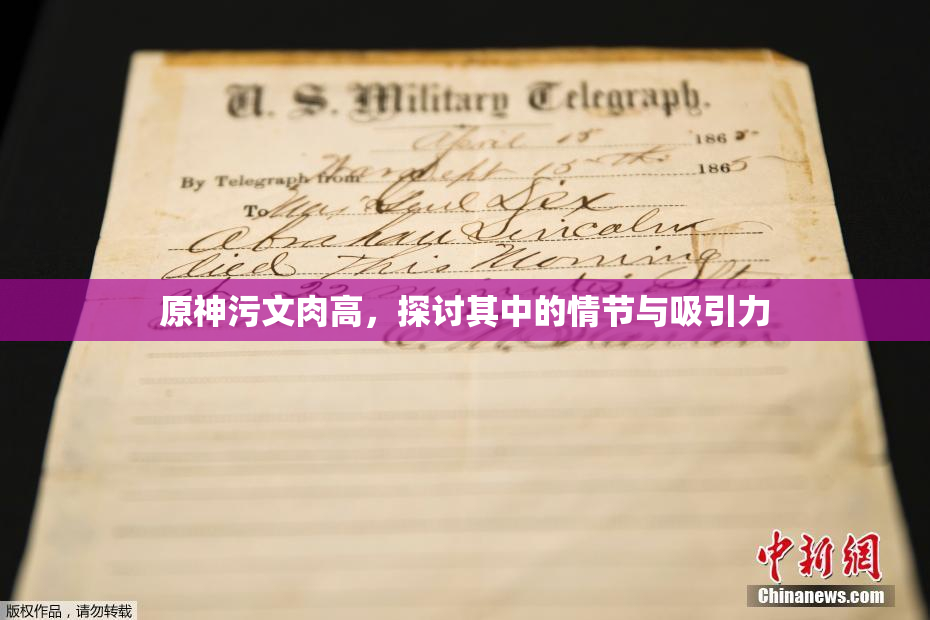 U. S. Military Telegraph.
April 15 1865
By Telegraph from War Dept 15th 1865
To Maj Genl Dix
Abraham Lincoln
died This Morning
at 22 minutes after
原神污文肉高，探讨其中的情节与吸引力
E. M. Stanton
中新网
Chinanews.com
版权作品，请勿转载